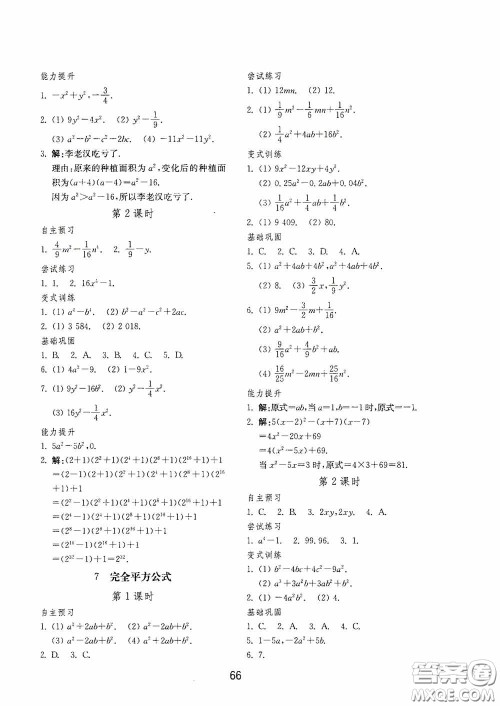 能力提升
1. -x²+y²,-3/4.
2. (1) 9y²-4x². (2) y²-1/9.
(3) a²-b²-c²-2bc. (4) -11x²-11y².
3. 解:李老汉吃亏了.
理由:原来的种植面积为a²,变化后的种植面
积为(a+4)(a-4)=a²-16,
因为a²>a²-16,所以李老汉吃亏了.
第2课时
自主预习
1. 4/9m²-1/16n². 2. 1/9-y.
尝试练习
1. 1. 2. 16x⁴-1.
变式训练
1. (1) a⁴-b⁴. (2) b²-a²-c²+2ac.
2. (1) 3 584. (2) 2 018.
基础巩固
1. B. 2. A. 3. D. 4. C. 5. A.
6. (1) 4a²-9. (2) 1-9x².
7. (1) 9y²-16b². (2) y²-1/4x².
(3) 16y²-1/4x².
能力提升
1. 5a²-5b²,0.
2. 解:(2+1)(2²+1)(2⁴+1)(2⁸+1)(2¹⁶+1)+1
=(2-1)(2+1)(2²+1)(2⁴+1)(2⁸+1)(2¹⁶
+1)+1
=(2²-1)(2²+1)(2⁴+1)(2⁸+1)(2¹⁶+1)+1
=(2⁴-1)(2⁴+1)(2⁸+1)(2¹⁶+1)+1
=(2⁸-1)(2⁸+1)(2¹⁶+1)+1
=(2¹⁶-1)(2¹⁶+1)+1
=(2³²-1)+1=2³².
7 完全平方公式
第1课时
自主预习
1. (1) a²+2ab+b². (2) a²-2ab+b².
(3) a²-2ab+b². (4) a²+2ab+b².
2. D. 3. C.
尝试练习
1. (1) 12mn. (2) 12.
2. (1) 1/9m²-1/6mn+1/16n².
(2) 1/4a²+4ab+16b².
变式训练
1. (1) 9x²-12xy+4y².
(2) 0.25a²-0.2ab+0.04b².
(3) 1/16a²+1/4ab+1/4b².
2. (1) 9 409. (2) 80.
基础巩固
1. C. 2. C. 3. D. 4. A.
5. (1) a²+4ab+4b²,a²+4ab+4b².
(2) 8. (3) 3/2x,1/9y².
6. (1) 9m²-3/2m+1/16.
(2) 9/16a²+4/9b²+ab.
(3) 16/25m²-2mn+25/16n².
能力提升
1. 解:原式=ab,当a=1,b=-1时,原式=-1.
2. 解:5(x-2)²-(x+7)(x-7)
=4x²-20x+69
=4(x²-5x)+69.
当x²-5x=3时,原式=4×3+69=81.
第2课时
自主预习
1. C. 2. D. 3. 2xy,2xy. 4. A.
尝试练习
1. a⁴-1. 2. 99,96. 3. 1.
变式训练
1. (1) b²-4bc+4c²-9a².
(2) a³+3a²b+3ab²+b³.
2. (1) -4a²b². (2) 4.
基础巩固
1. C. 2. A. 3. A. 4. D.
5. 1-5a,-2a²+5b.
6. 7.
66